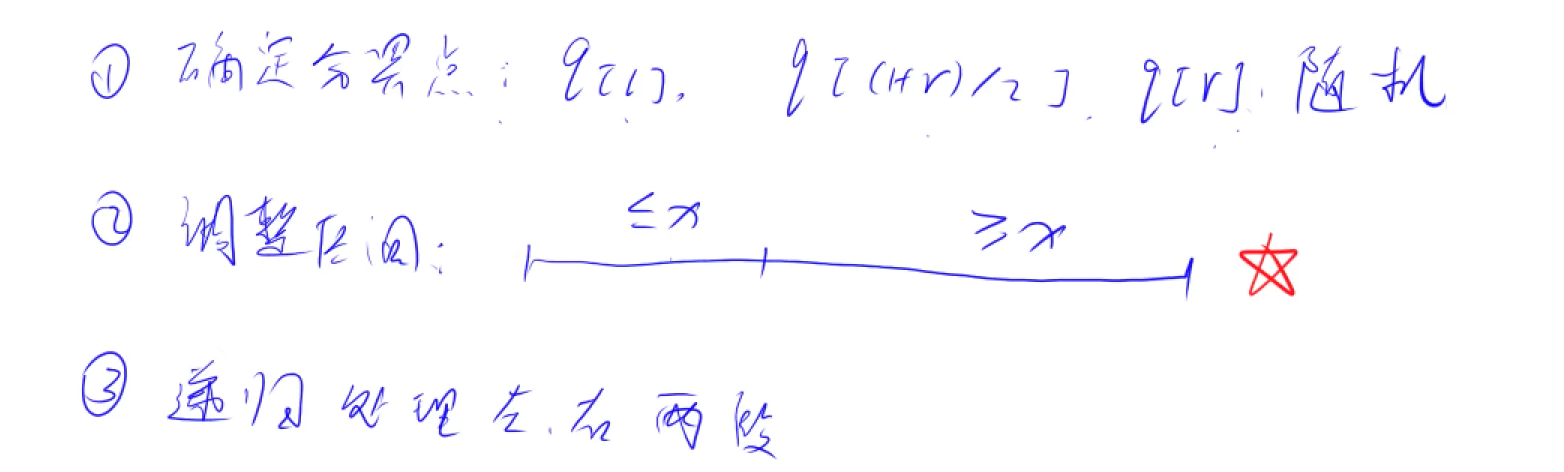 ① 确定分界点：q[l], q[(l+r)/2]. q[r]. 随机
② 调整区间： ≤x ≥x
③ 递归处理左、右两段